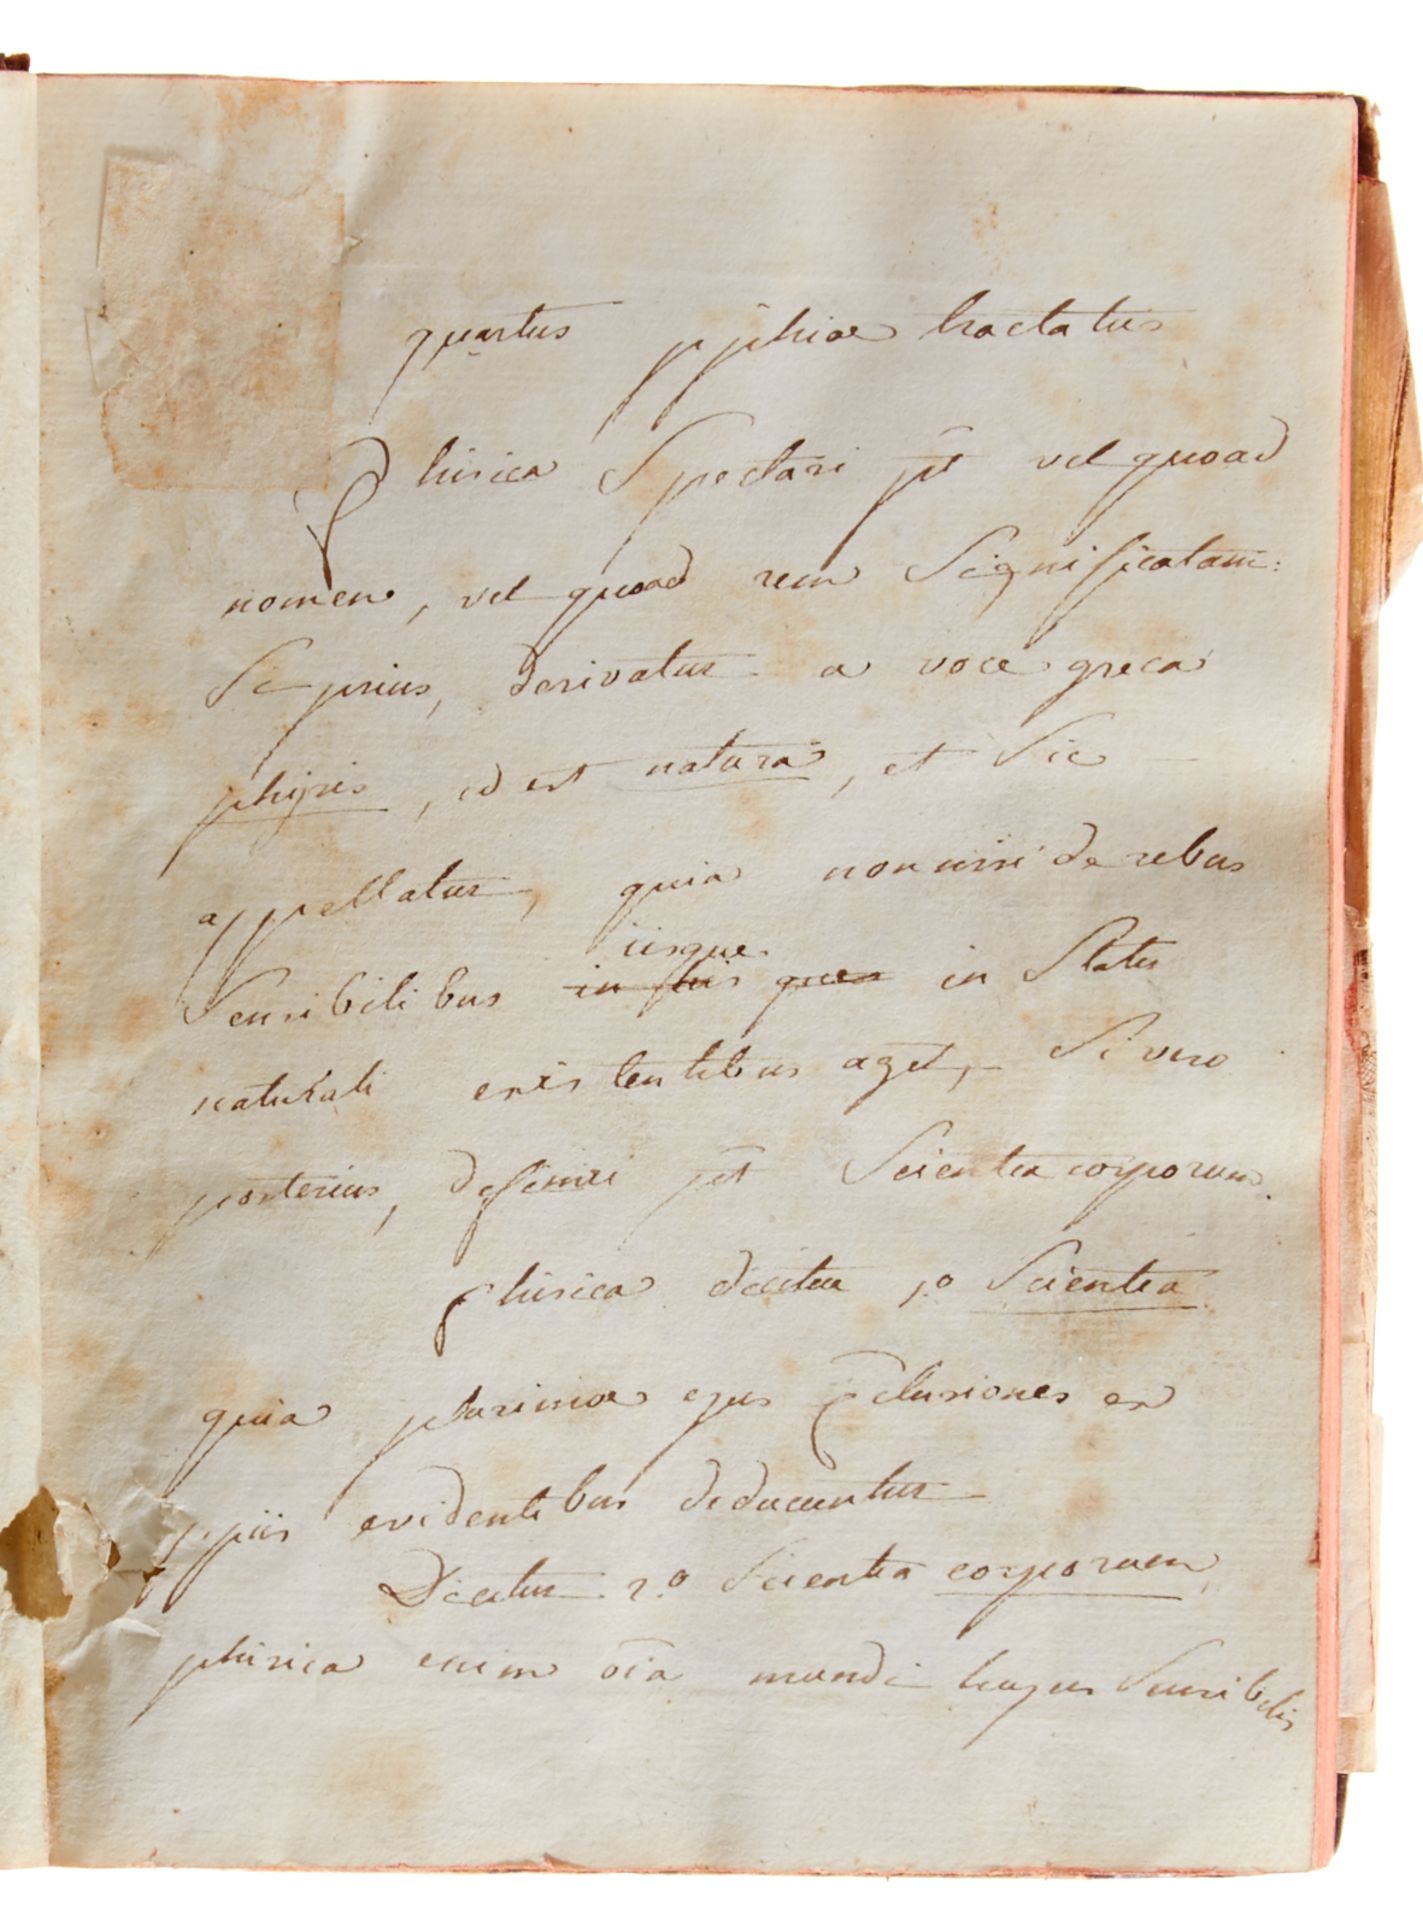 quartus pphiae tractatus
Phisica Spectari pt vel quoad
nomen, vel quoad rem Significatam:
Si prius, derivatur a voce greca
phijsis, id est natura, et Sic
appellatur, quia non nisi de rebus
iisque
Sensibilibus in his quae in Statu
naturali existentibus aget, Si vero
posterius, definiri pt Scientia corporum.
phisica dicitur 1.o Scientia
quia plurimae ejus Cclusiones ex
ppiis evidentibus deducuntur
Dicitur 2.o Scientia corporum,
phisica enim oia mundi hujus Sensibilis